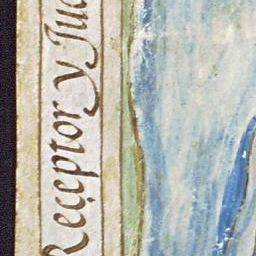 Reçeptor y Jue